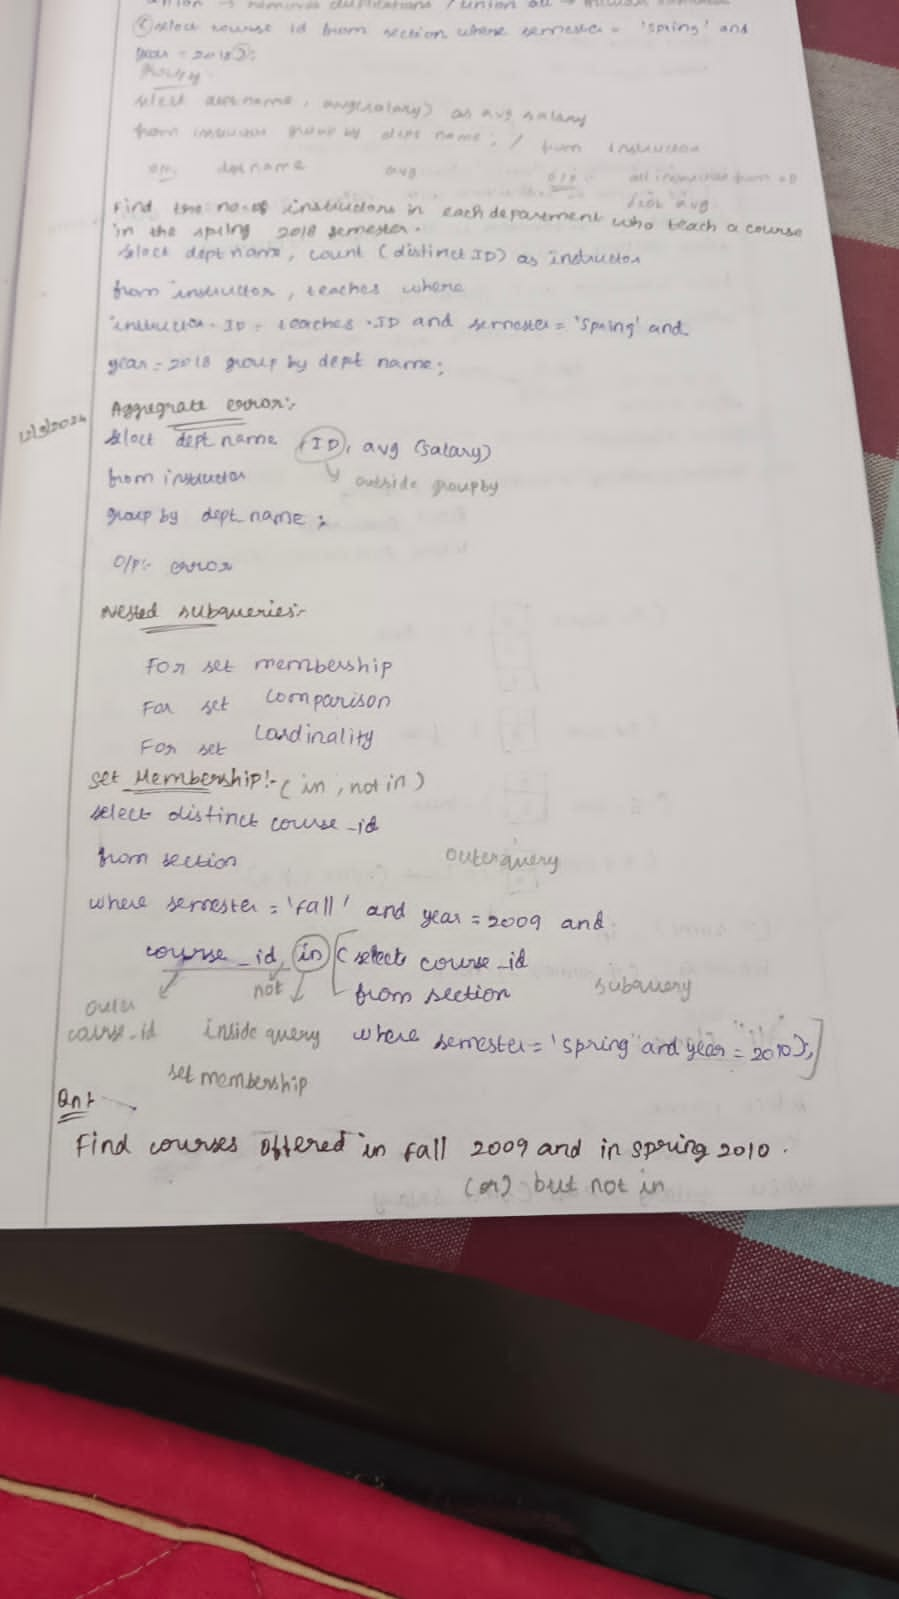 union → removes duplications / union all →
(select course id from section where semester = 'spring' and
year = 2018);
select dept name, avg(salary) as avg salary
from instructor group by dept name; / from instructor
dept name avg o/p:- all instructor from
Find the no. of instructors in each department who teach a course
in the spring 2018 semester.
select dept name, count (distinct ID) as instructor
from instructor, teaches where
instructor. ID = teaches .ID and semester = 'spring' and
year = 2018 group by dept name;
12/3/2024
Aggegrate error:-
select dept name, ID, avg (salary)
from instructor
outside groupby
group by dept_name ;
O/P:- error
Nested subqueries:-
For set membership
For set comparison
For set Cardinality
Set Membership:- (in, not in)
select distinct course_id
from section
outerquery
where semester = 'fall' and year = 2009 and
course_id, in (select course_id
not
from section
subquery
outer
course_id
inside query where semester = 'spring' and year = 2010);
set membership
Qn:-
Find courses offered in fall 2009 and in spring 2010.
(or) but not in